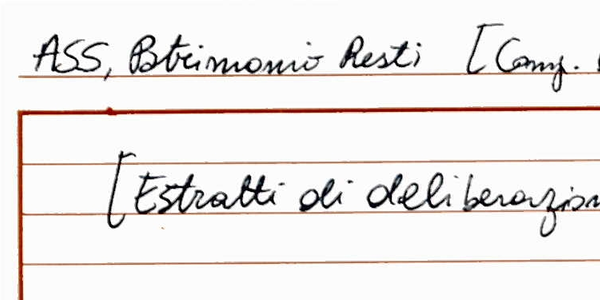 ASS, Patrimonio Resti [Comp.
[Estratti di deliberazion